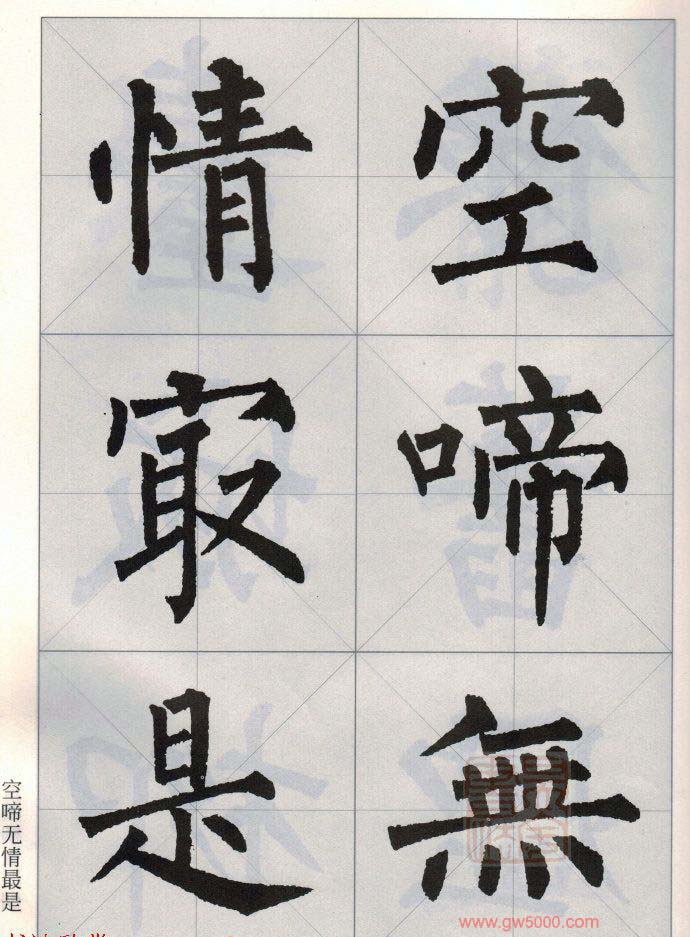 空啼無
情冣是
空啼无情最是
www.gw5000.com